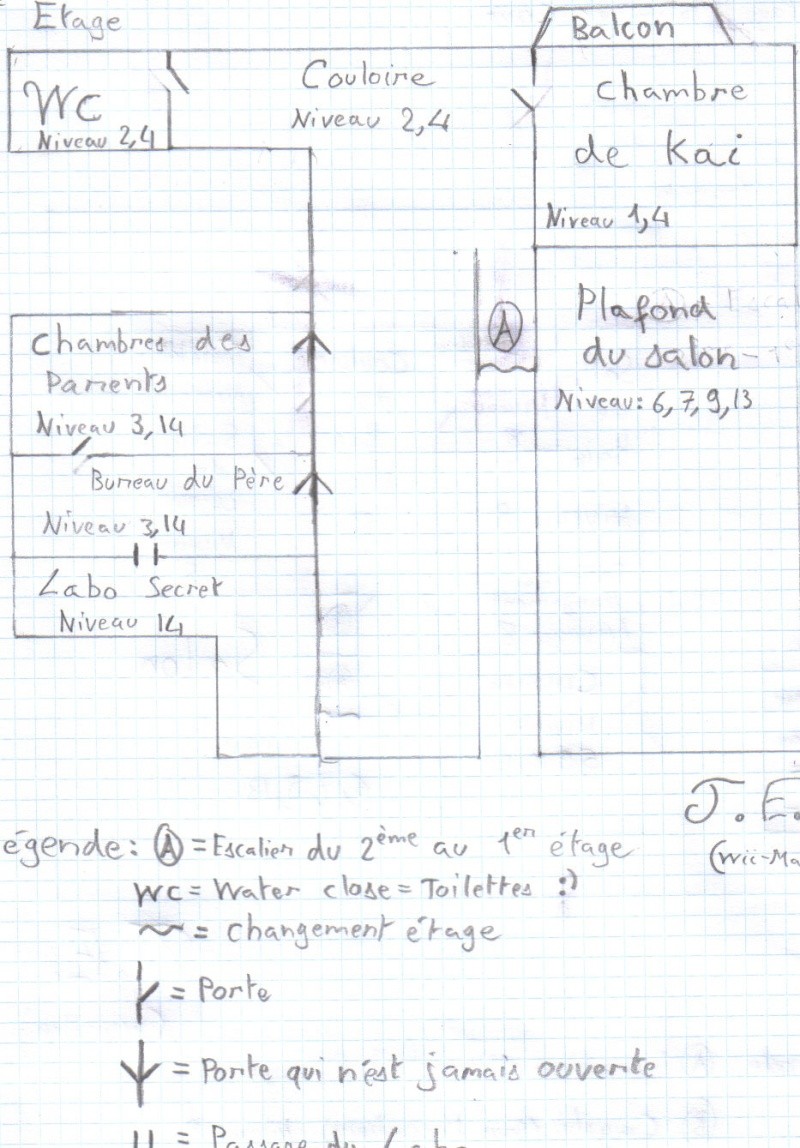 Etage
Balcon
WC
Niveau 2,4
Couloire
Niveau 2,4
Chambre
de Kai
Niveau 1,4
Chambres des
Parents
Niveau 3,14
Bureau du Père
Niveau 3,14
Labo Secret
Niveau 14
A
Plafond
du salon
Niveau: 6,7,9,13
J.E.
(Wii-Ma
égende: A = Escalier du 2ème au 1er étage
WC = Water close = Toilettes :)
~ = changement étage
= Porte
= Porte qui n'est jamais ouverte
= Passage du Labo